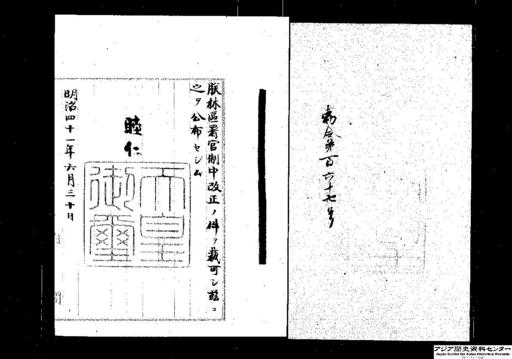 勅令第百六十七号
朕林區署官制中改正ノ件ヲ裁可シ茲ニ
之ヲ公布セシム
睦仁
天皇御璽
明治四十一年六月三十日
アジア歴史資料センター
Japan Center for Asian Historical Records